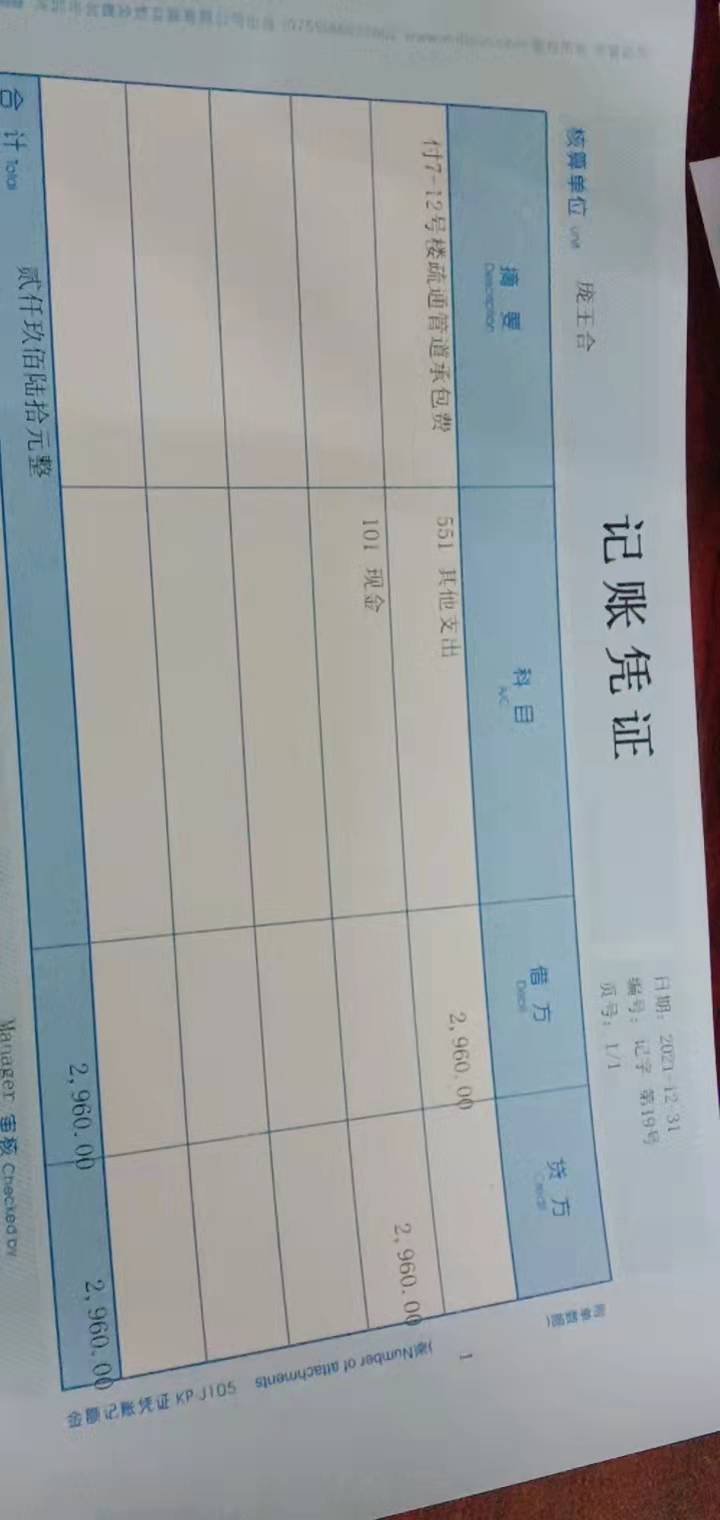 记账凭证
日期: 2021-12-31
编号: 记字 第19号
页号: 1/1
核算单位 Unit 庞王合
附单数据(
摘要 科目 借方 贷方
Description A/C Debit Credit
付7-12号楼疏通管道承包费 551 其他支出 2,960.00
101 现金 2,960.00
1
)张Number of attachments
金额记账凭证 KP-J105
合计 Total 贰仟玖佰陆拾元整 2,960.00 2,960.00
Manager 审核 Checked by